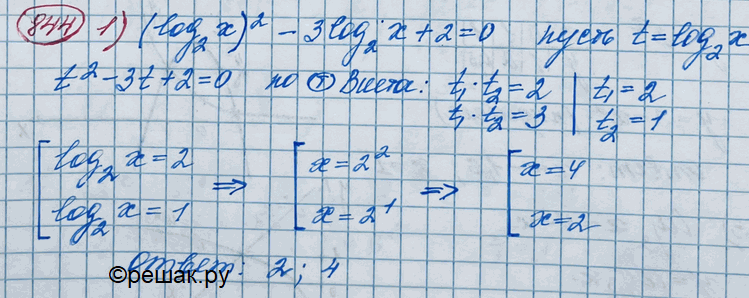 844 1) (log₂ x)² - 3log₂ x + 2 = 0 пусть t = log₂ x
t² - 3t + 2 = 0 по Т Виета: t₁ · t₂ = 2 | t₁ = 2
t₁ · t₂ = 3 | t₂ = 1
[ log₂ x = 2 ⇒ [ x = 2² ⇒ [ x = 4
log₂ x = 1 x = 2¹ x = 2
Ответ: 2; 4
©решак.ру